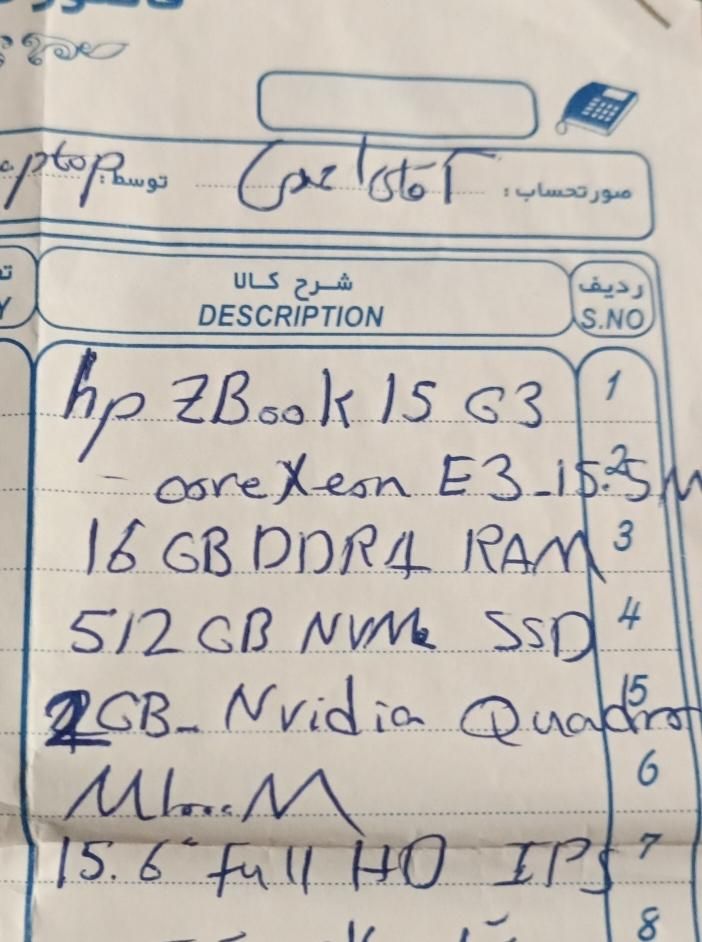 صورتحساب: توسط:
ردیف شرح کالا
S.NO DESCRIPTION
1 hp ZBook 15 G3
2 - core Xeon E3-1505M
3 16 GB DDR4 RAM
4 512 GB NVMe SSD
5 2GB- Nvidia Quadro
6 M1000M
7 15.6" Full HD IPS
8